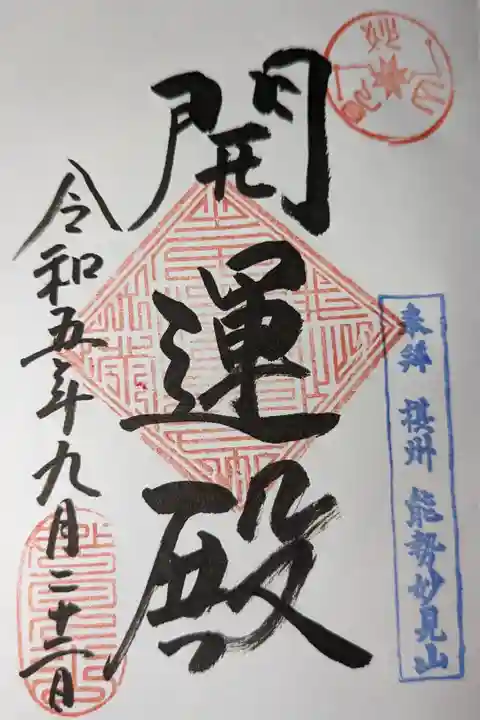 奉拝 摂州 能勢妙見山
開運殿
令和五年九月二十三日